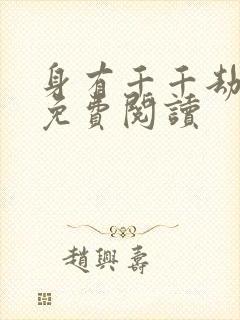 身有千千劫
免費閱讀
趙興壽